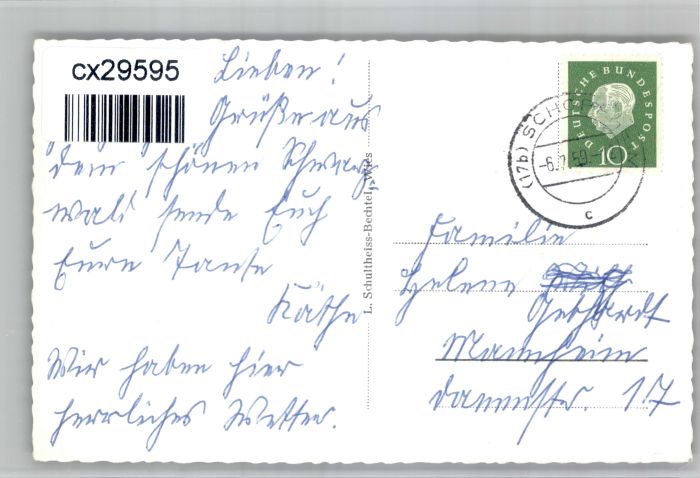 cx29595
Lieben!
Grüße aus
dem schönen Schwarz
wald sende Euch
Eure Tante
Käthe
Wir haben hier
herrliches Wetter.
L. Schultheiss-Bechtel, Wies
DEUTSCHE BUNDESPOST
10
(17b) SCHO
-6.7.59-1
c
Familie
Helene
Gebhardt
Mannheim
Dammstr. 17